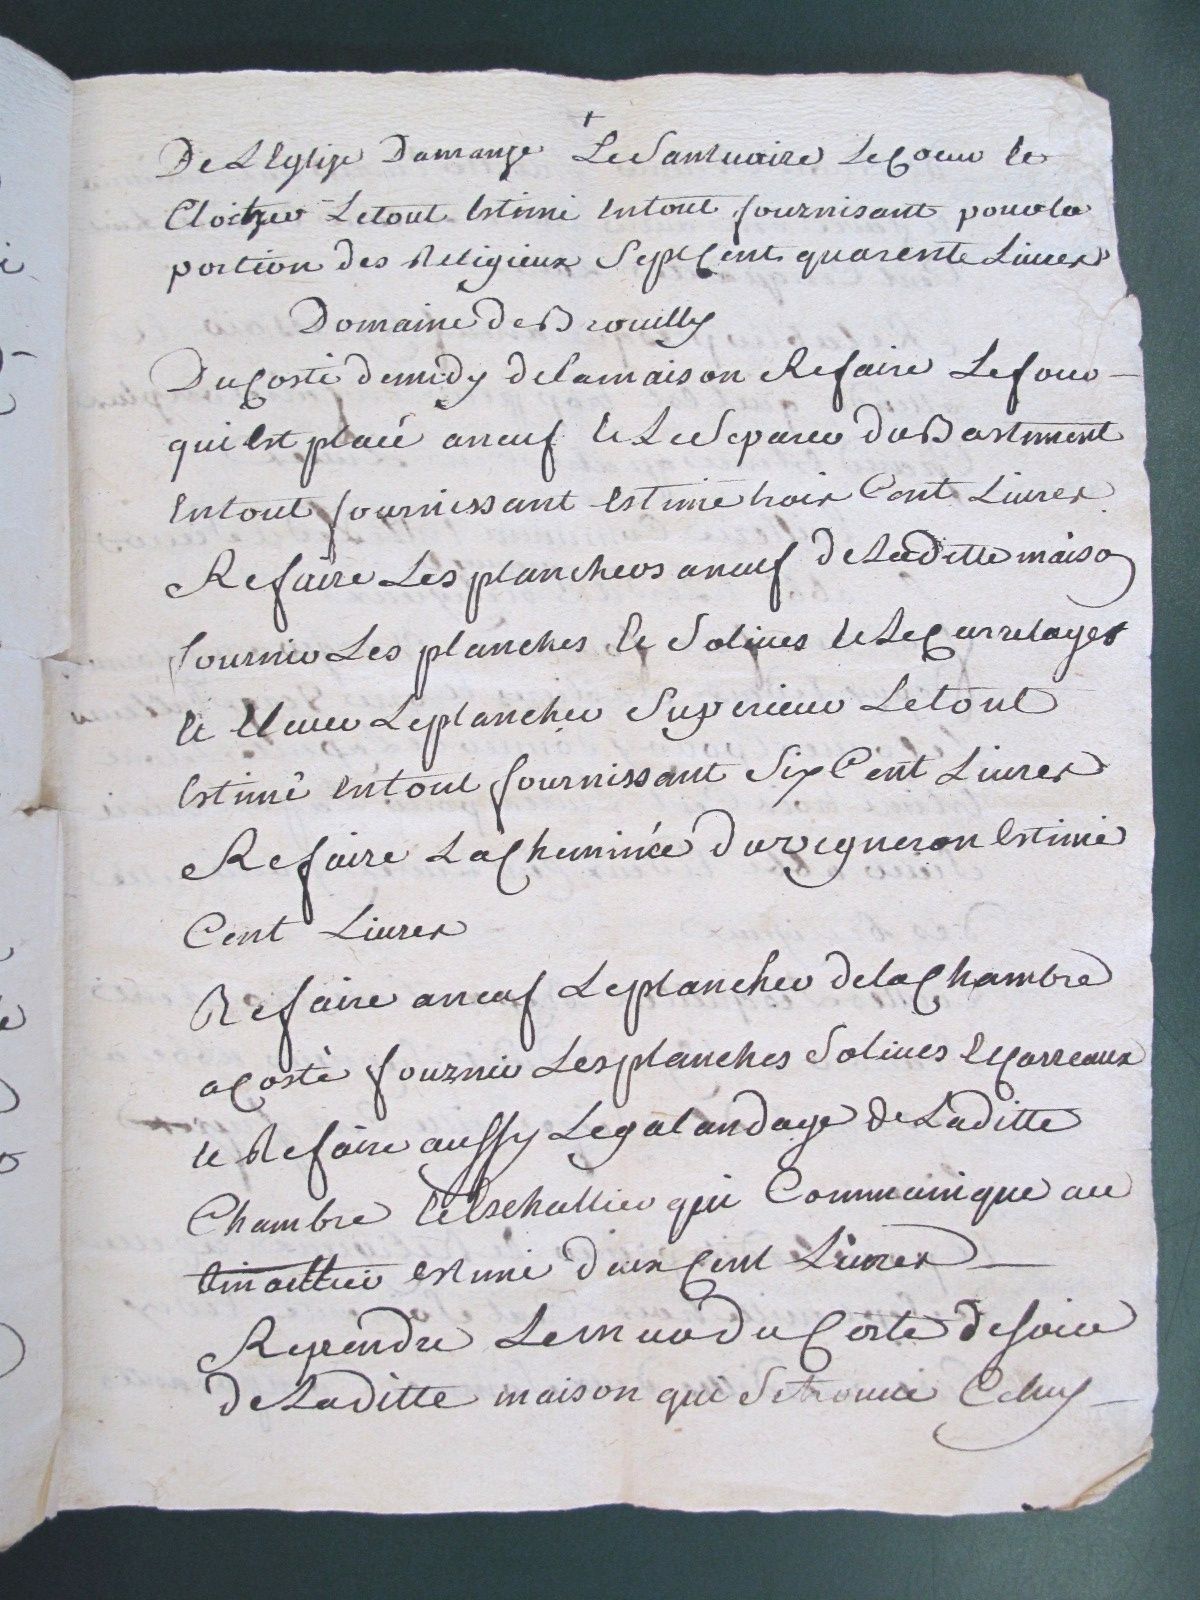 De L'Eglise Damange Le Santuaire Le Coeur le
Cloitzer Letout Estimé Entout fournisant pour la
portion des Religieux Sept Cent quarente Livres
Domaine de Brouilly
Du Costé demidy delamaison Refaire Le four
qui Est placé aneuf le Le Separer du Bastiment
Entout fournissant Estimé trois Cent Livres
Refaire Les planchers aneuf de Laditte maison
fournir Les planches le Solives le Le Carrelages
le Elever Le plancher Superieur Le tout
Estimé Entout fournissant Six Cent Livres
Refaire La Cheminée du vigneron Estimé
Cent Livres
Refaire aneuf Le plancher dela Chambre
a Costé fournir Les planches Solives le Carreaux
le Refaire aussy Le galandage de Laditte
Chambre le Eschallier qui Communique au
Estimé deux Cent Livres
Reprendre Le mur du Costé de soir
de Laditte maison qui Setrouve Celuy